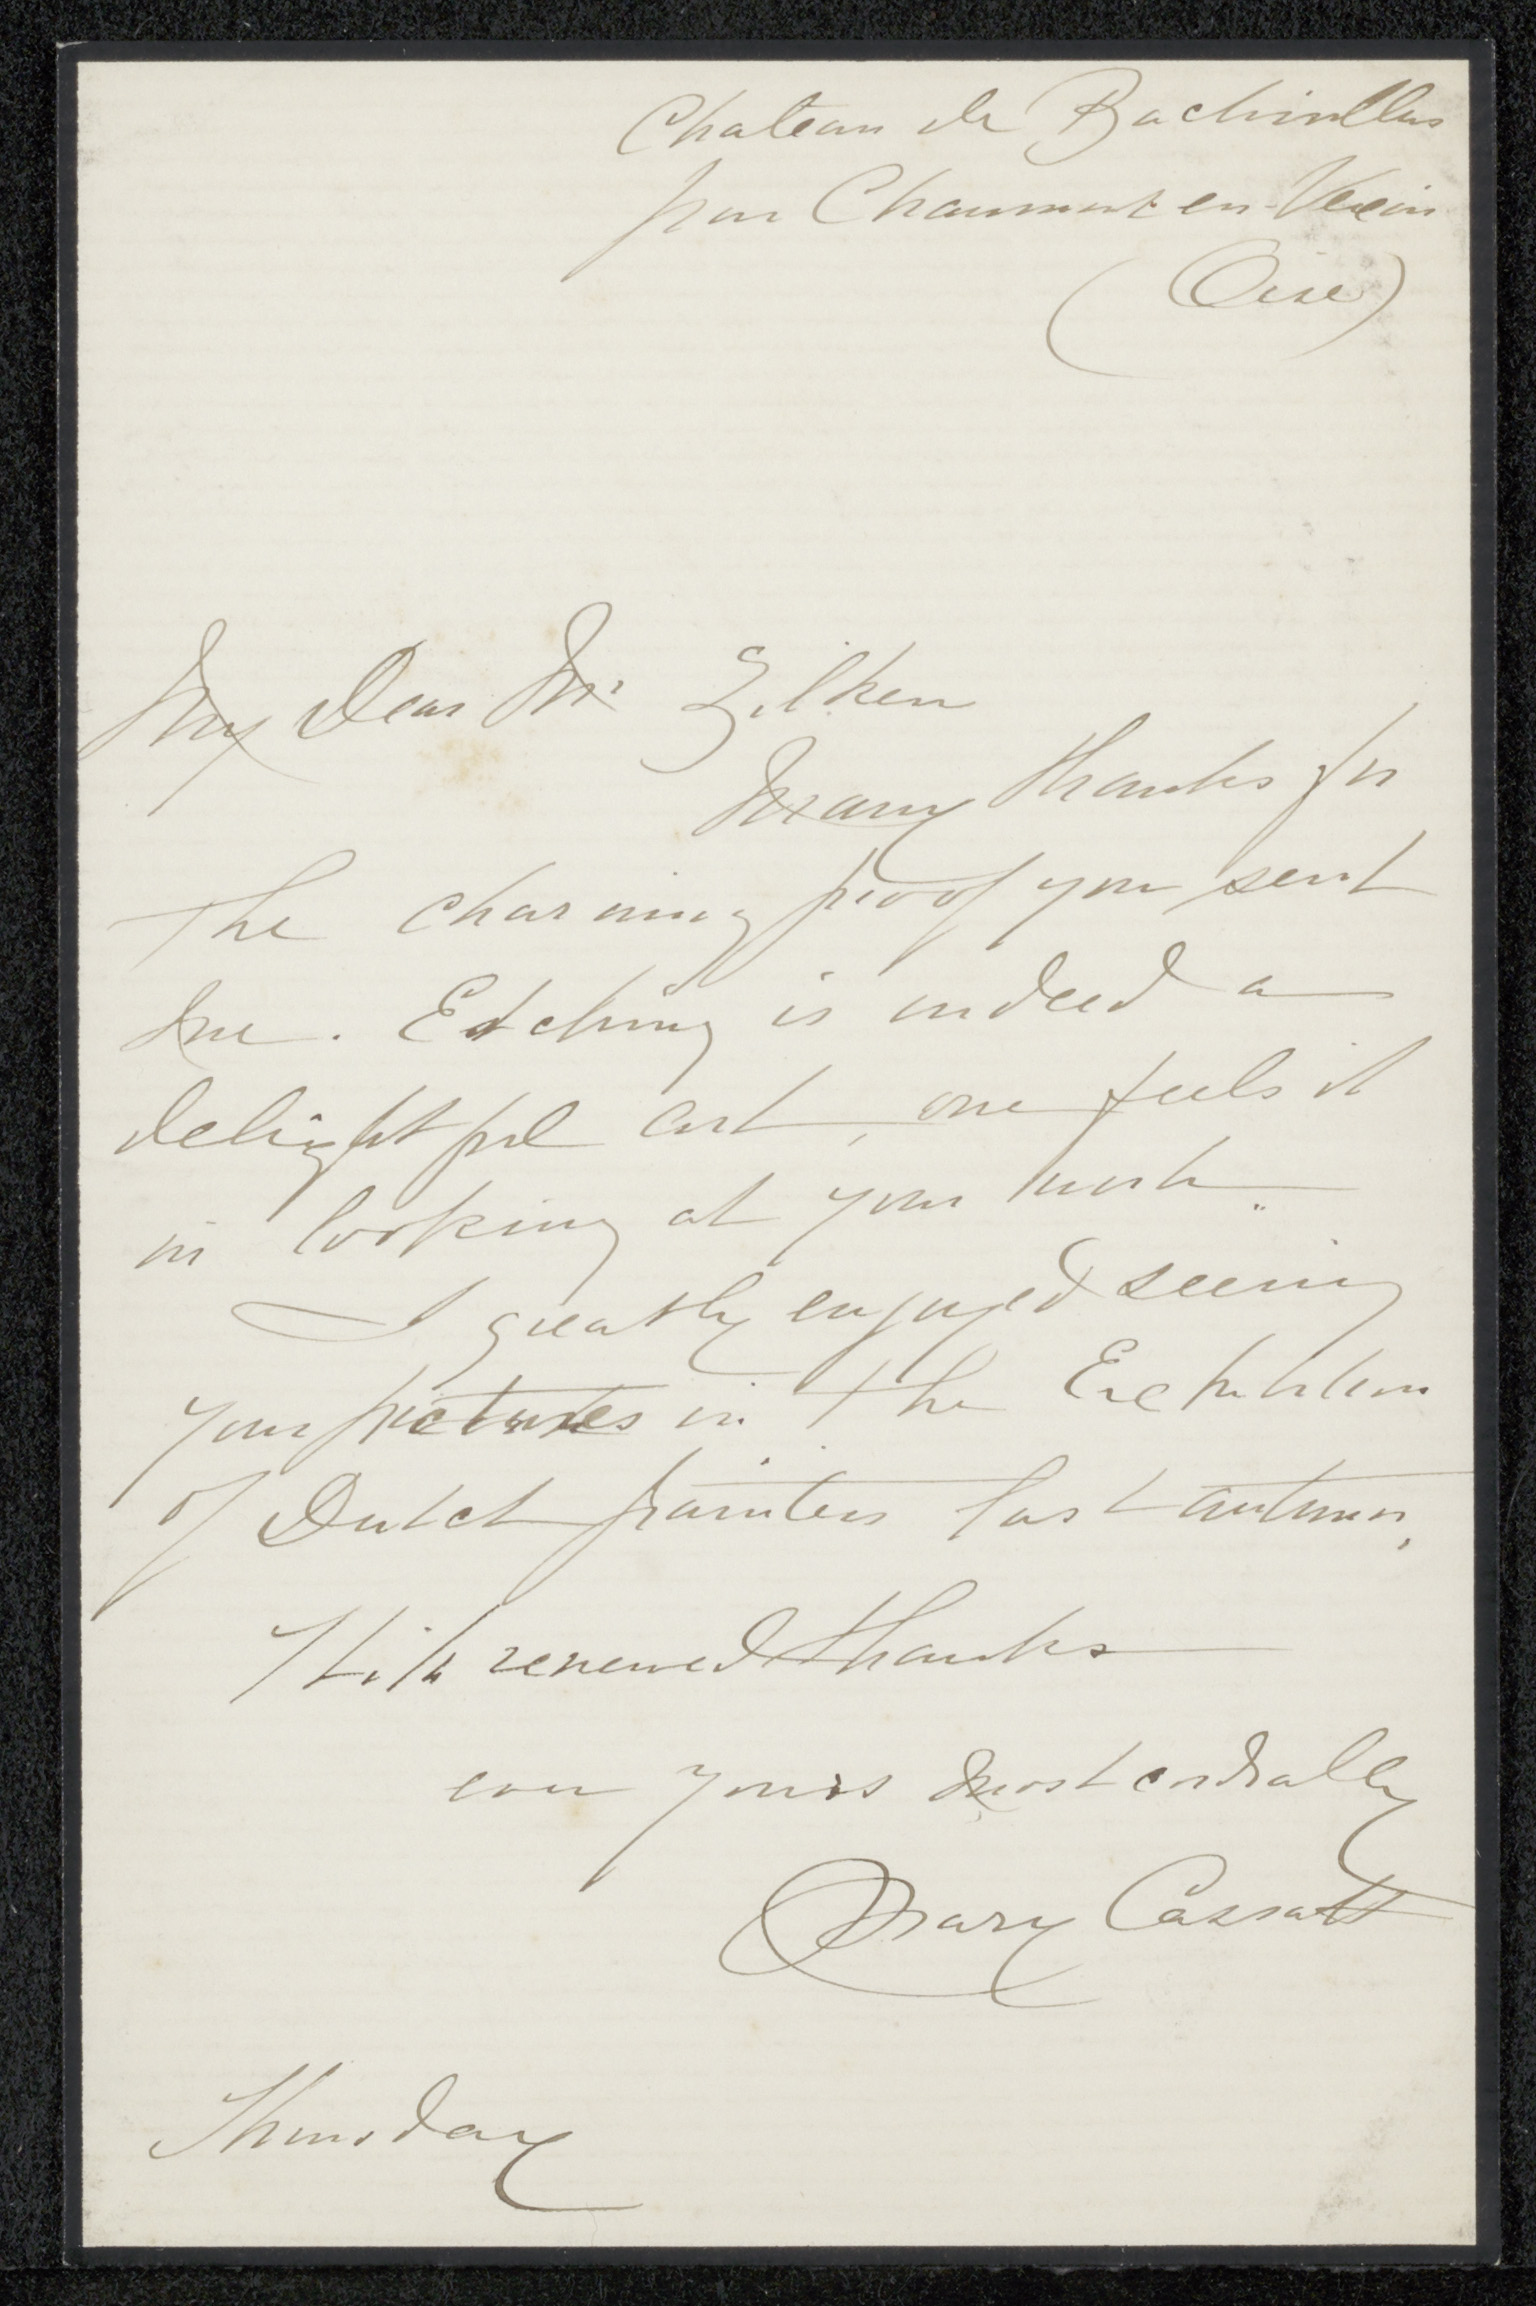 Chateau de Bachivillers
par Chaumont en Vexin
(Oise)
My Dear Mr Zilken
Many thanks for
the charming proof you sent
me. Etching is indeed a
delightful art, one feels it
in looking at your work..
I greatly enjoyed seeing
your pictures in the Exhibition
of Dutch painters last autumn,
With renewed thanks
ever yours most cordially
Mary Cassatt
Thursday